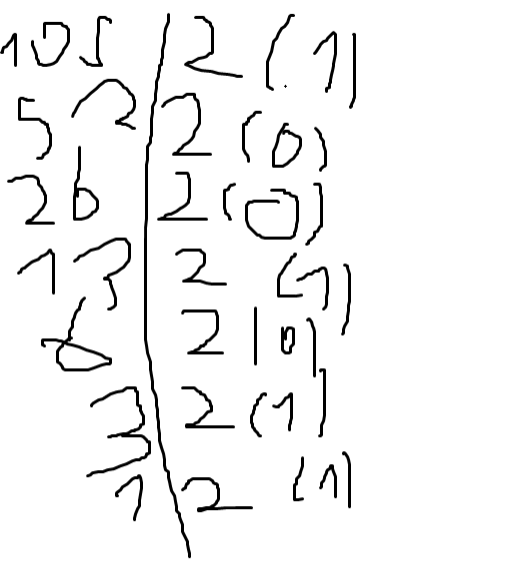 105 | 2 (1)
52 | 2 (0)
26 | 2 (0)
13 | 2 (1)
6 | 2 (0)
3 | 2 (1)
1 | 2 (1)